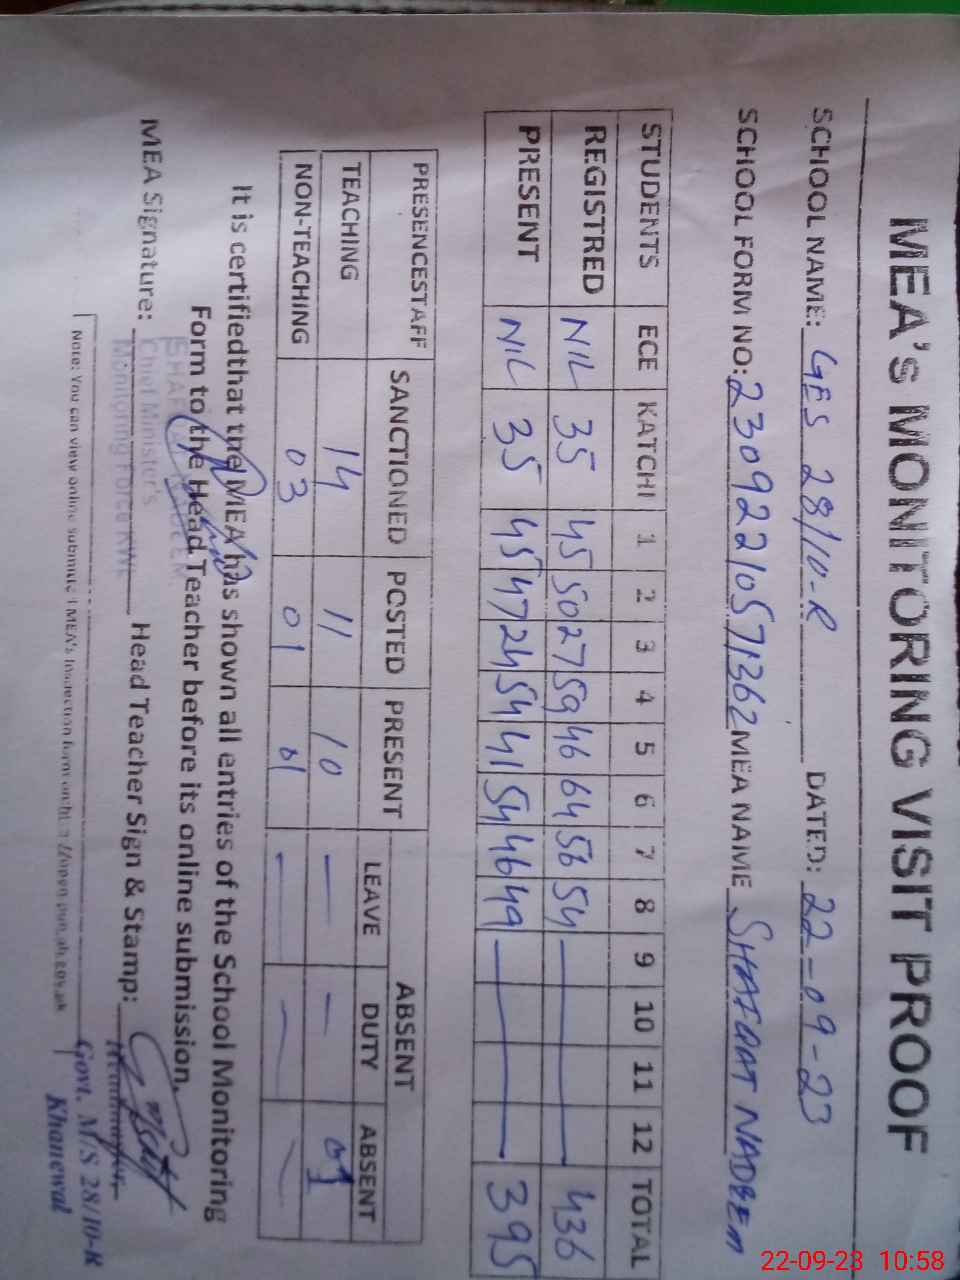 MEA's MONITORING VISIT PROOF
SCHOOL NAME: GES 28/10-R DATED: 22-09-23
SCHOOL FORM NO: 23092210571362 MEA NAME SHAFQAT NADEEM
STUDENTS ECE KATCHI 1 2 3 4 5 6 7 8 9 10 11 12 TOTAL
REGISTRED NIL 35 45 50 27 59 46 64 56 54 — 436
PRESENT NIL 35 45 47 24 54 41 54 46 49 — 395
PRESENCESTAFF SANCTIONED POSTED PRESENT ABSENT
LEAVE DUTY ABSENT
TEACHING 14 11 10 — — 01
NON-TEACHING 03 01 01 — — —
It is certifiedthat the MEA has shown all entries of the School Monitoring
Form to the Head Teacher before its online submission.
SHAFQAT NADEEM
Chief Minister's
Monitoring Force KWL
MEA Signature: Head Teacher Sign & Stamp:
Headmaster
Govt. M/S 28/10-R
Khanewal
Note: You can view online submitted MEA's Inspection form on
22-09-23 10:58